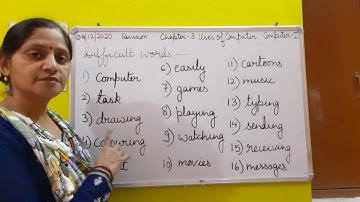 04/12/2020 Revision Chapter-3 Uses of Computer Computer-I
Difficult words—
1) Computer
2) task
3) drawing
4) colouring
6) easily
7) games
8) playing
9) watching
10) movies
11) cartoons
12) music
13) typing
14) sending
15) receiving
16) messages